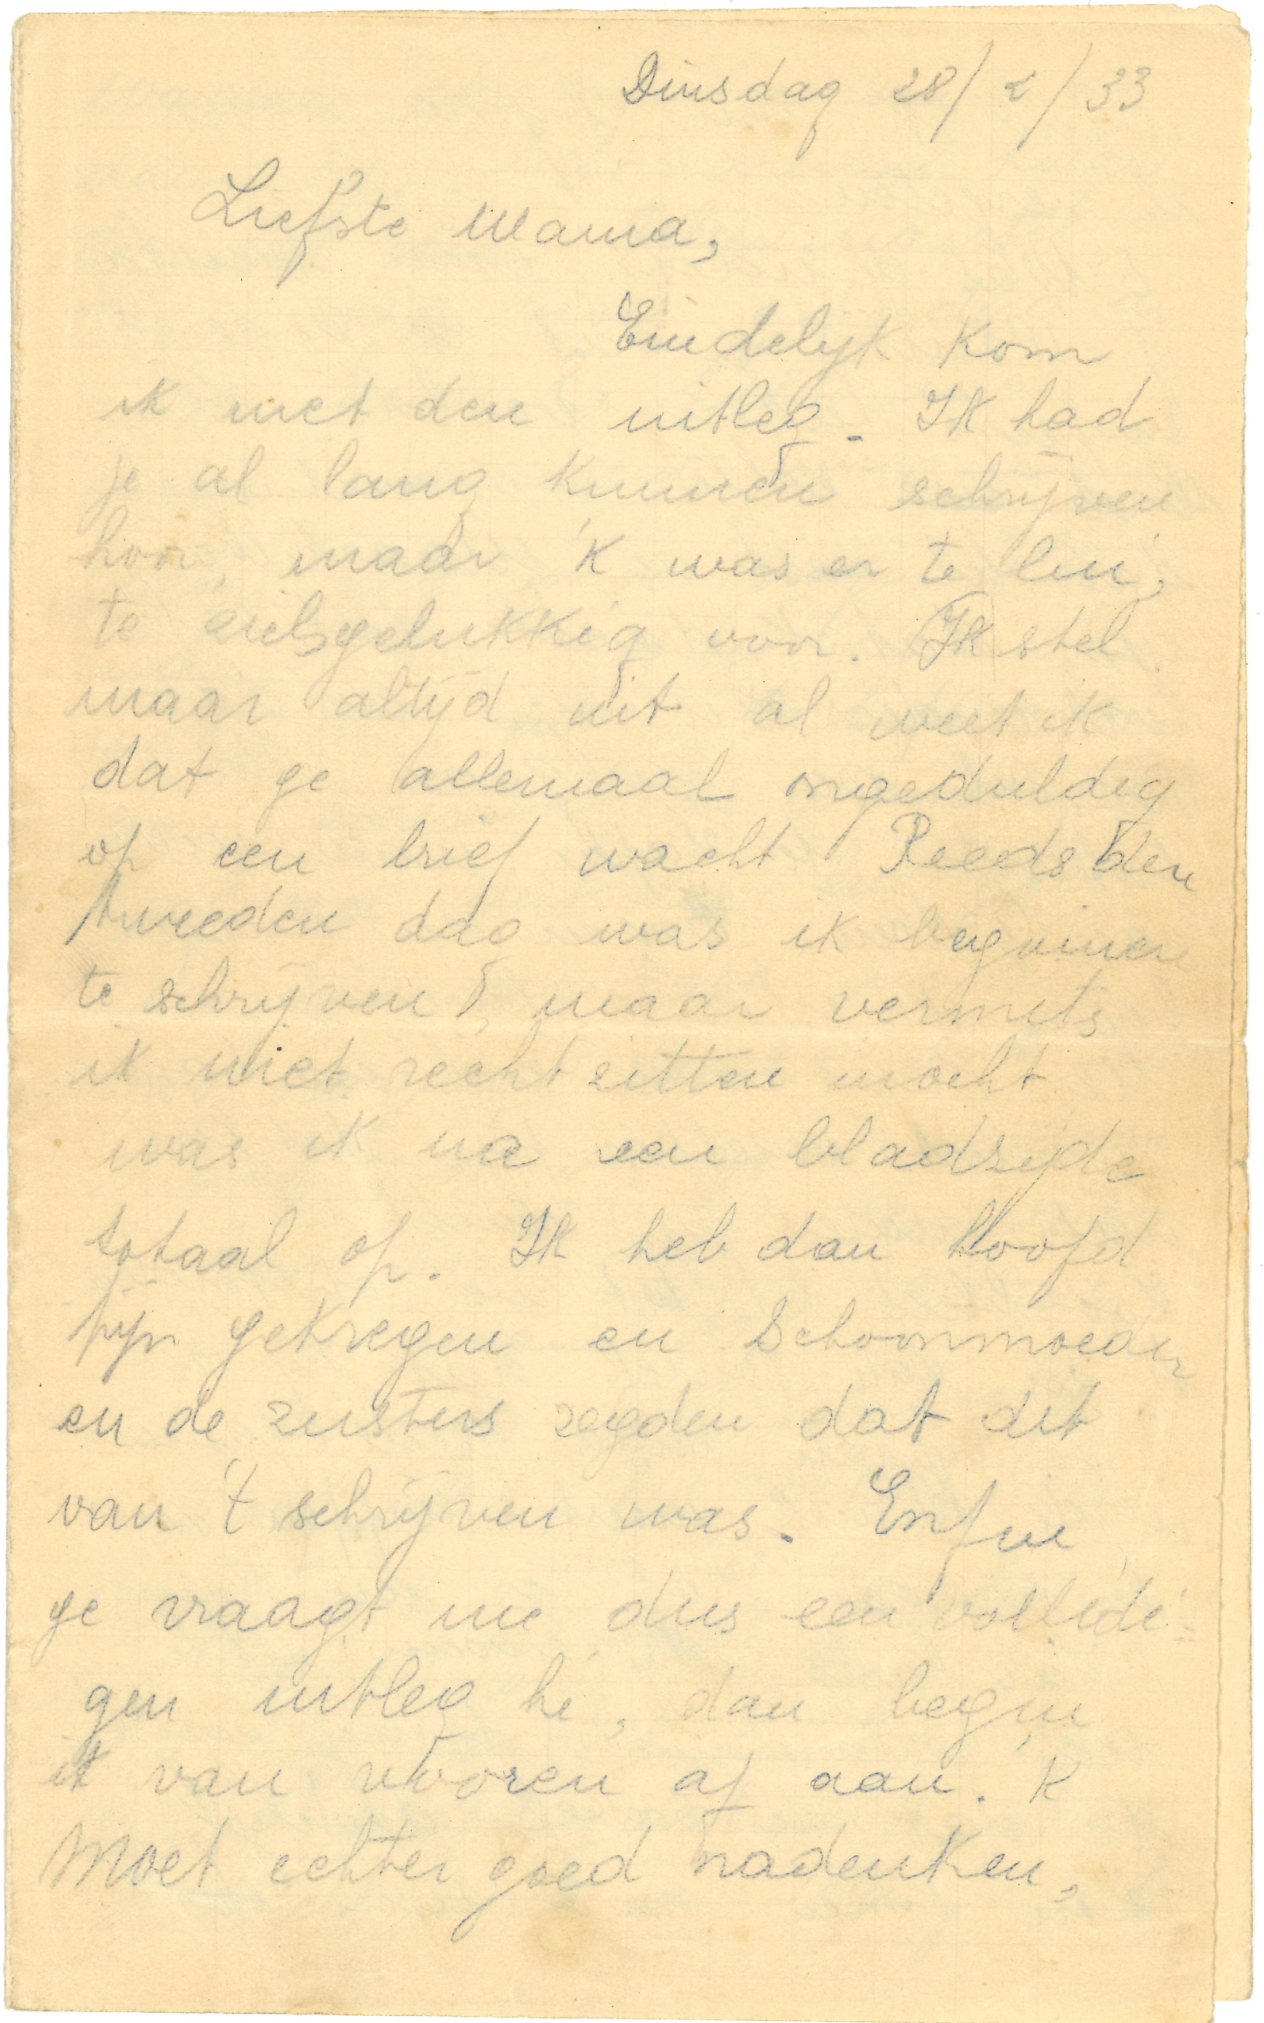 Dinsdag 28/2/33
Liefste Mama,
Eindelijk kom
ik met den uitleg. Ik had
je al lang kunnen schrijven
hoor, maar 'k was er te lui,
te zielsgelukkig voor. Ik stel
maar altijd uit al weet ik
dat ge allemaal ongeduldig
op een brief wacht. Reeds den
tweeden dag was ik begonnen
te schrijven, maar vermits
ik niet recht zitten mocht
was ik na een bladzijde
totaal op. Ik heb dan hoofd
pijn gekregen en Schoonmoeder
en de zusters zegden dat dit
van 't schrijven was. Enfin
ge vraagt me dus een volledi=
gen uitleg hé, dan begin
ik van vooren af aan. 'K
Moet echter goed nadenken,